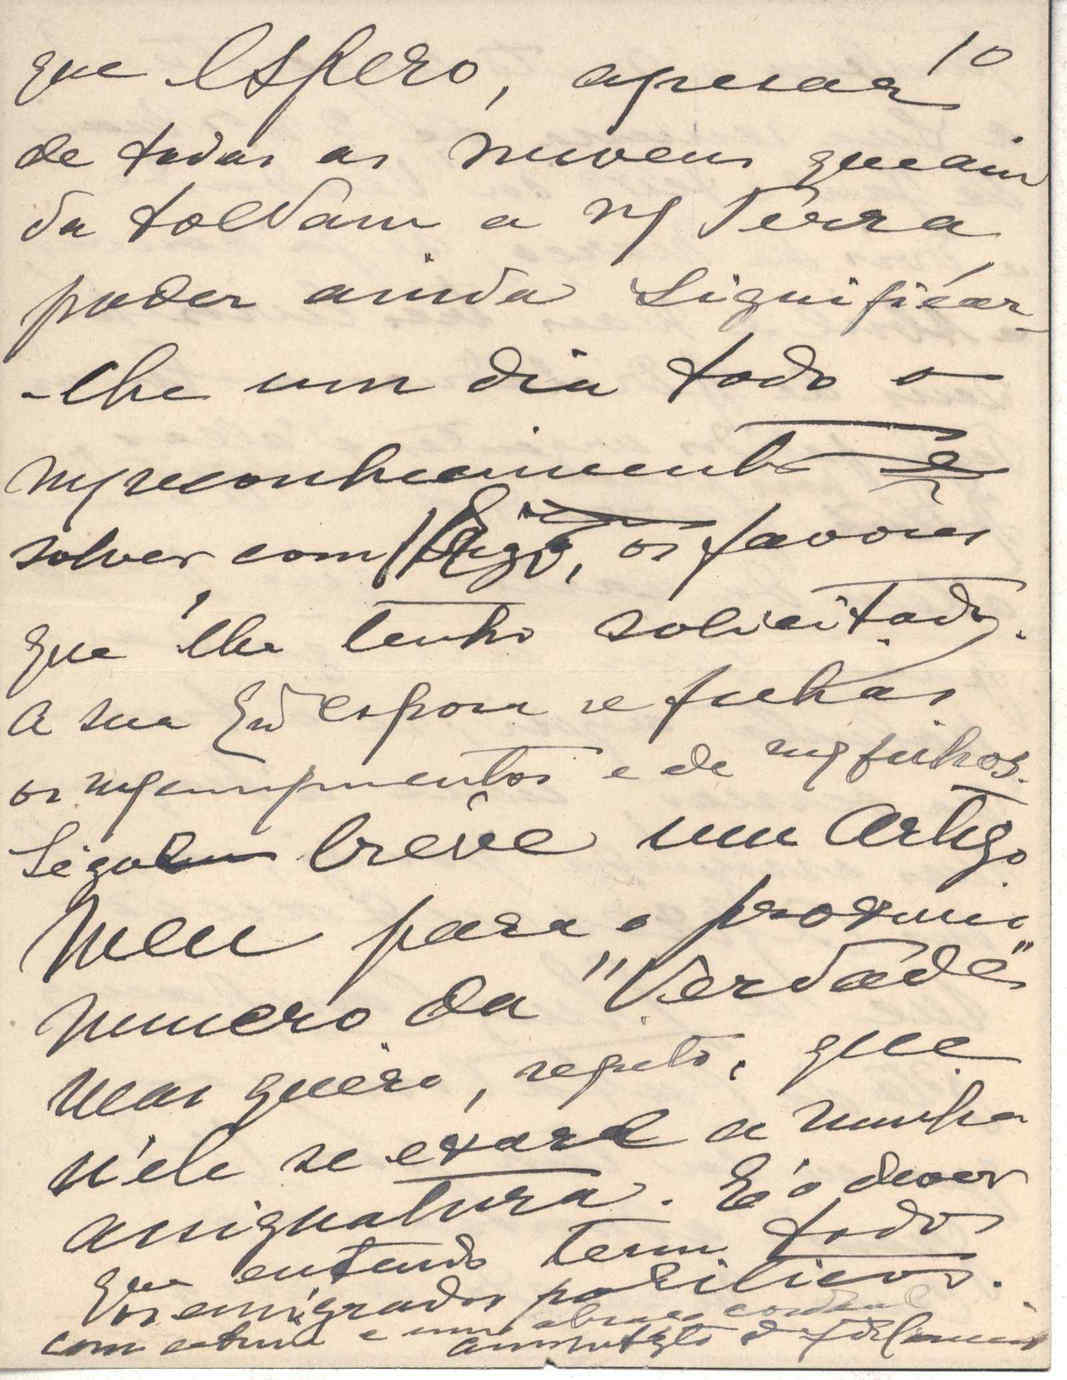 10
que espero, apesar
de todas as nuvens que ain
da toldam a n/ Terra
poder ainda significar-
-lhe um dia todo o
m/ reconhecimento e
solver comsigo, os favores
que lhe tenho solicitado.
A sua Exª esposa e filhas
os m/ cumprimentos e de m/ filhos.
Segue breve um artigo
meu para o proximo
numero da "Verdade"
mas quero, repito, que
n'ele se exare a minha
assignatura. É o dever
que entendo terem todos
os emigrados politicos.
com estima e um abraço cordeal